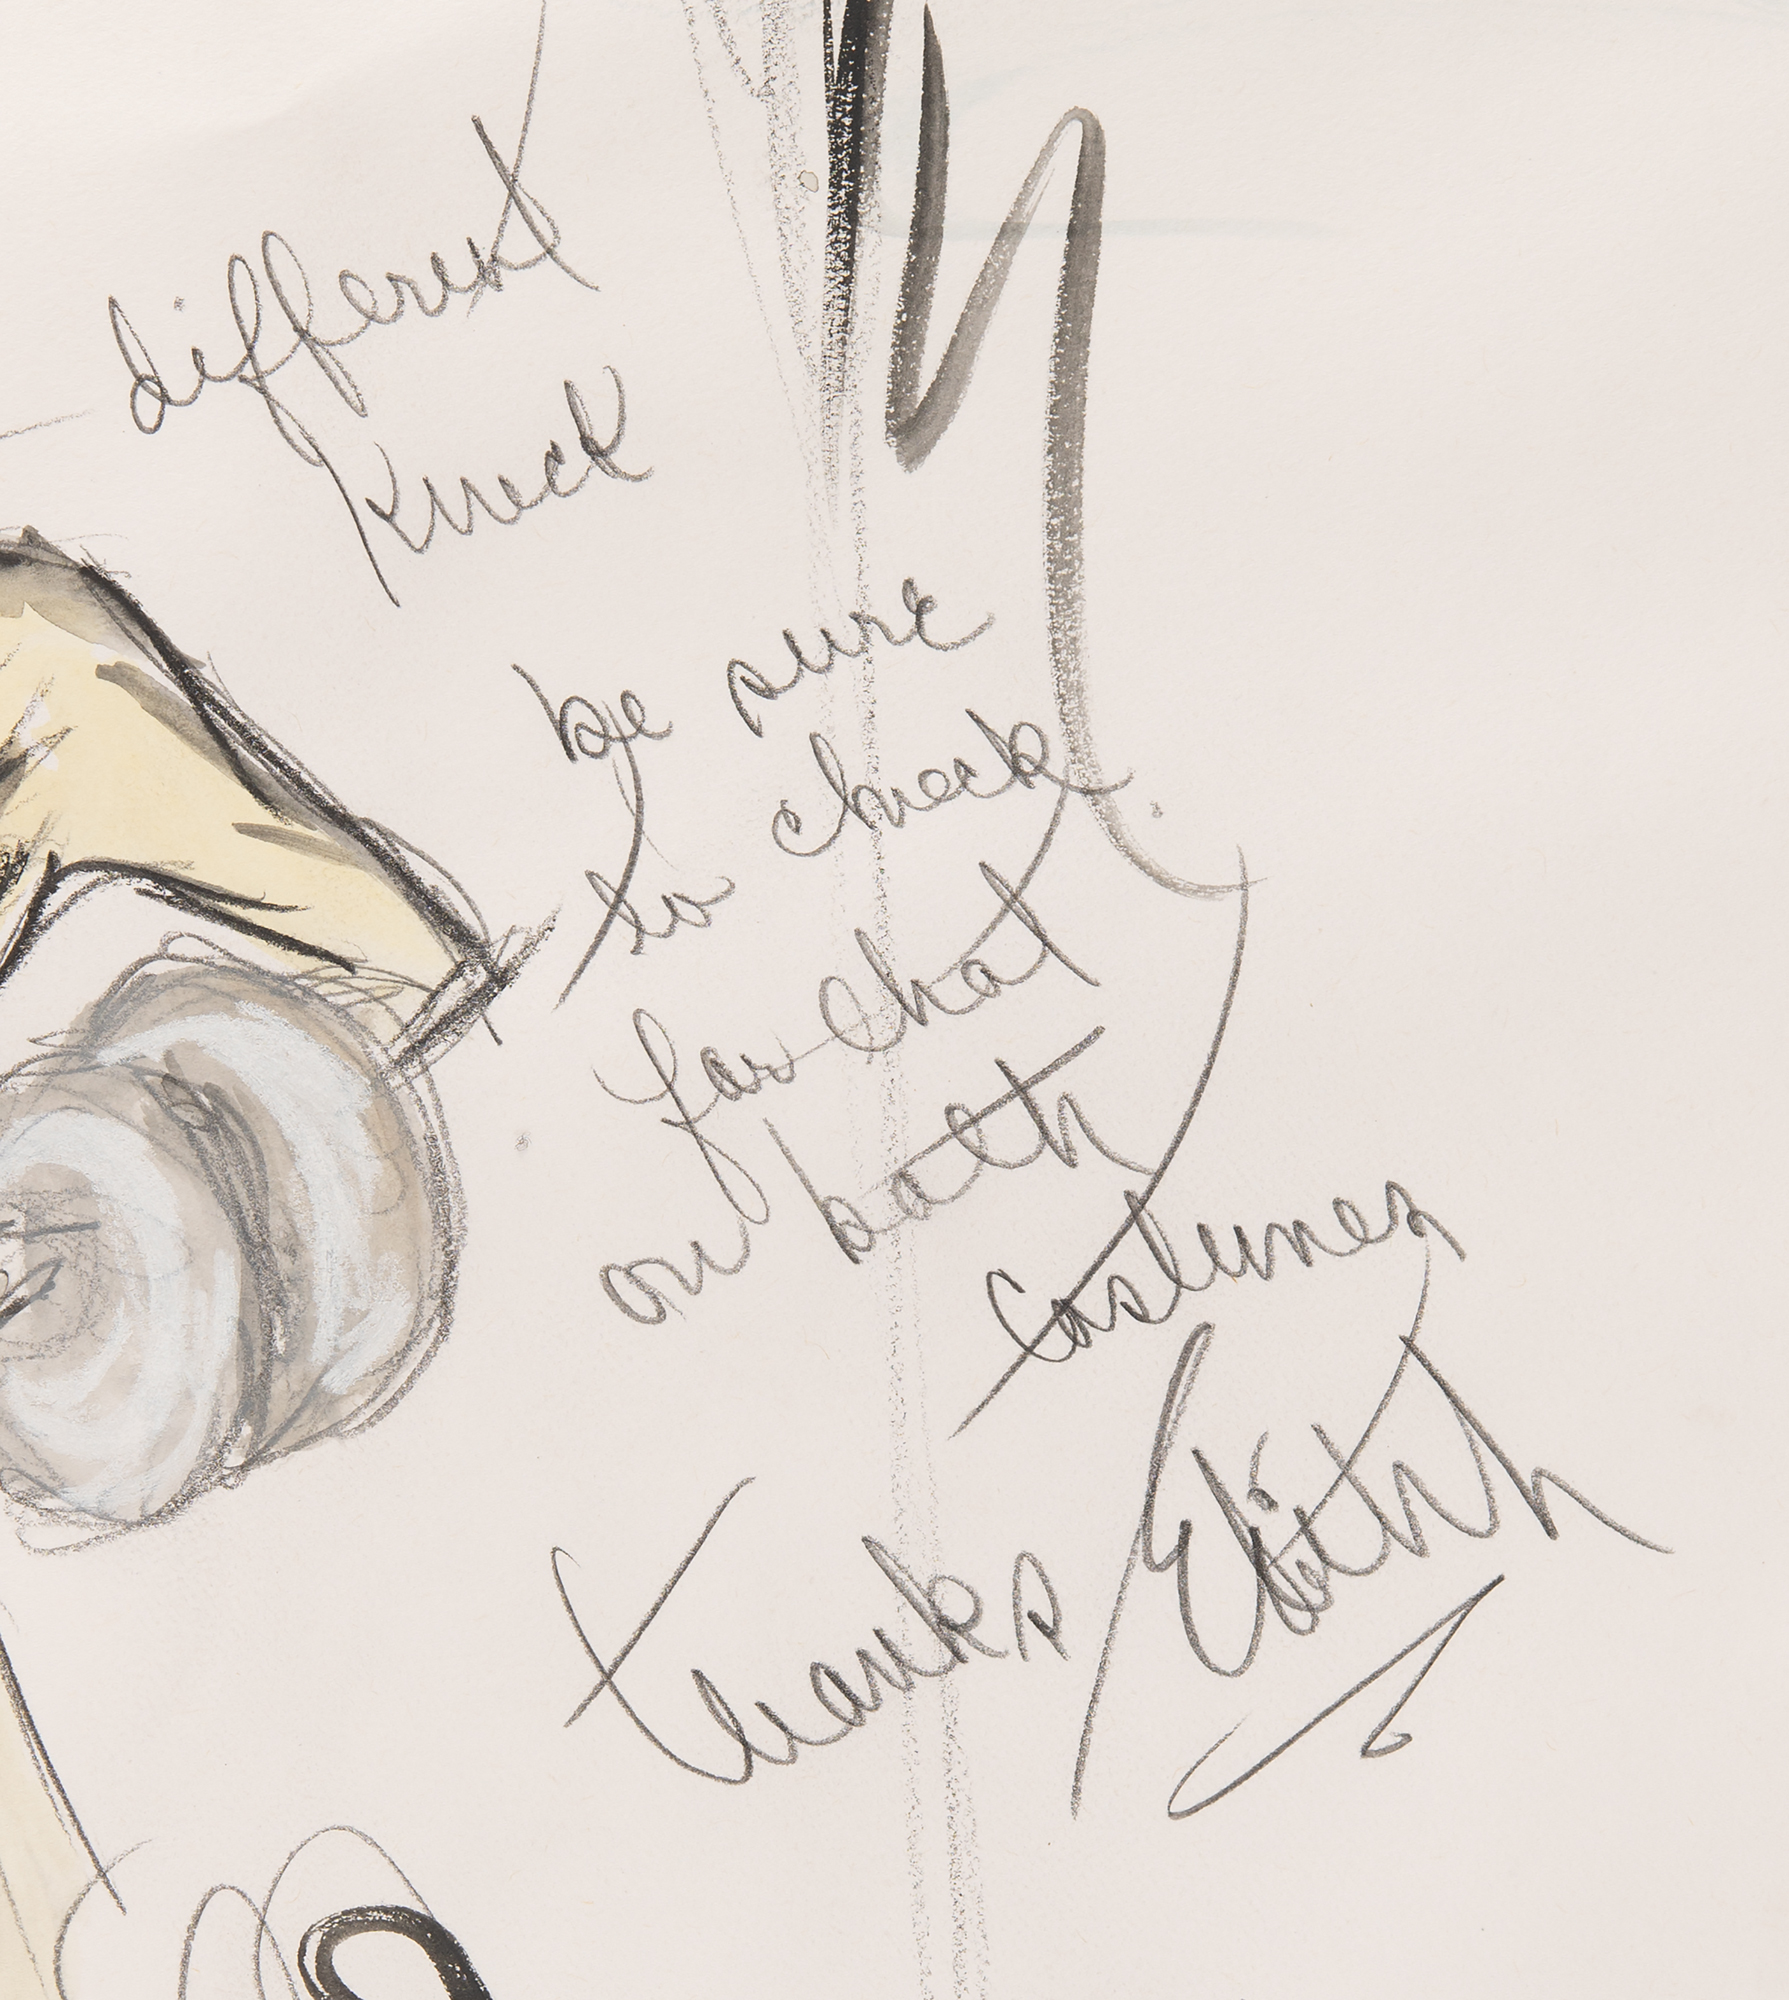 different
kneck
be sure
to check.
for that
on both
Costumes
thanks